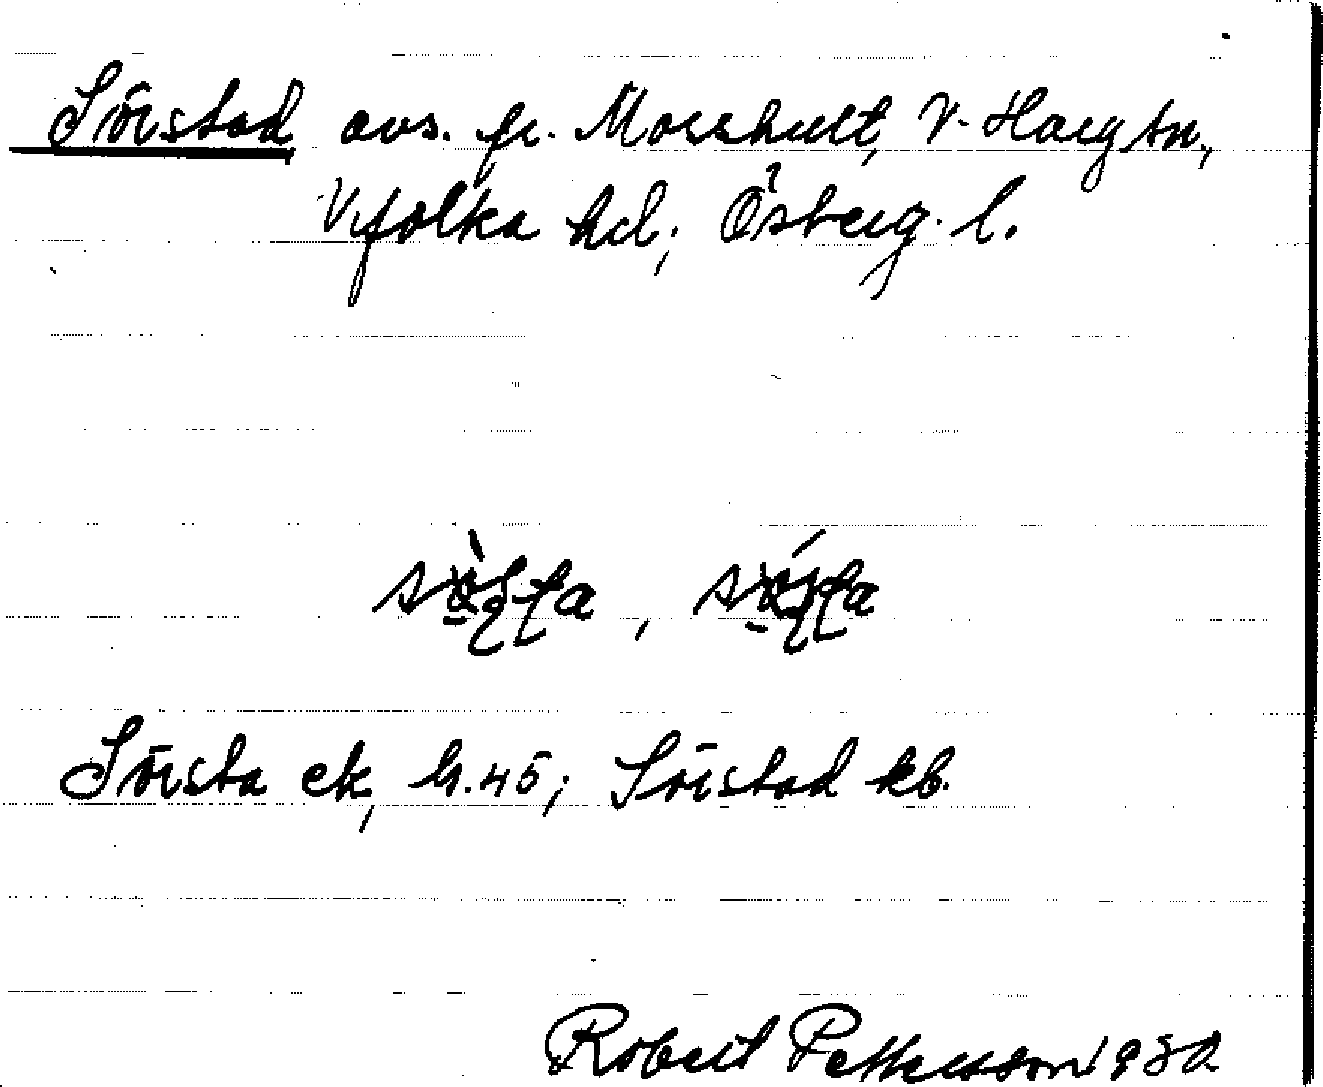 Sörstad avs. fr. Morshult, V. Harg sn,
Vifolka hd; Östergl.
Sörsta ek, bl. 45; Sörstad kb.
Robert Pettersson 1930